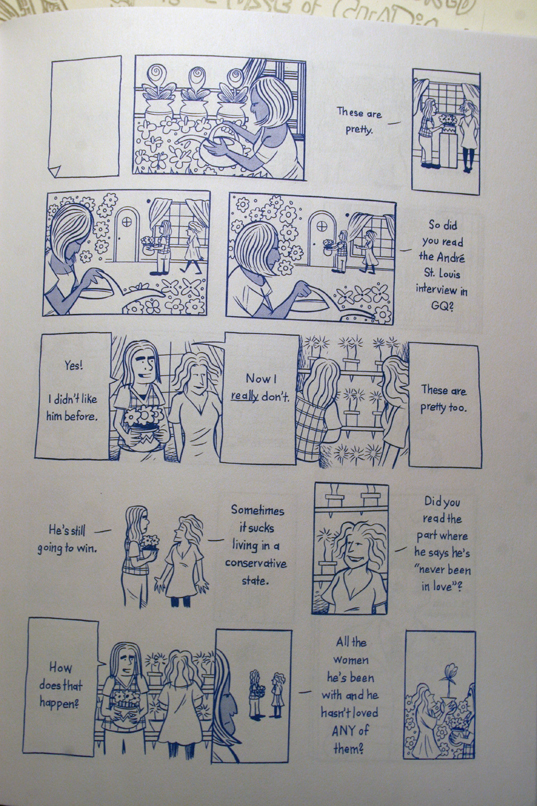 OF
These are
pretty.
So did
you read
the André
St. Louis
interview in
GQ?
Yes!
I didn't like
him before.
Now I
really don't.
These are
pretty too.
He's still
going to win.
Sometimes
it sucks
living in a
conservative
state.
Did you
read the
part where
he says he's
"never been
in love"?
How
does that
happen?
All the
women
he's been
with and he
hasn't loved
ANY of
them?